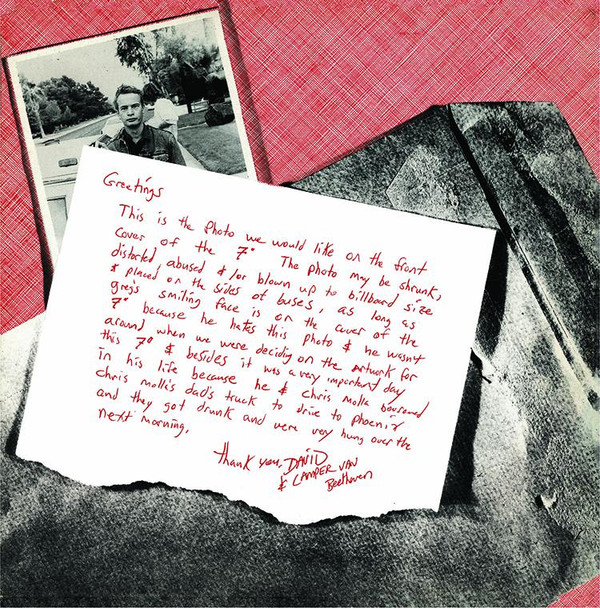 Greetings
This is the photo we would like on the front
cover of the 7" The photo may be shrunk,
distorted abused &/or blown up to billboard size
& placed on the sides of buses, as long as
greg's smiling face is on the cover of the
7" because he hates this photo & he wasn't
around when we were deciding on the artwork for
this 7" & besides it was a very important day
in his life because he & Chris Molla borrowed
chris molla's dad's truck to drive to phoenix
and they got drunk and were very hung over the
next morning.
thank you, DAVID
& CAMPER VAN
Beethoven